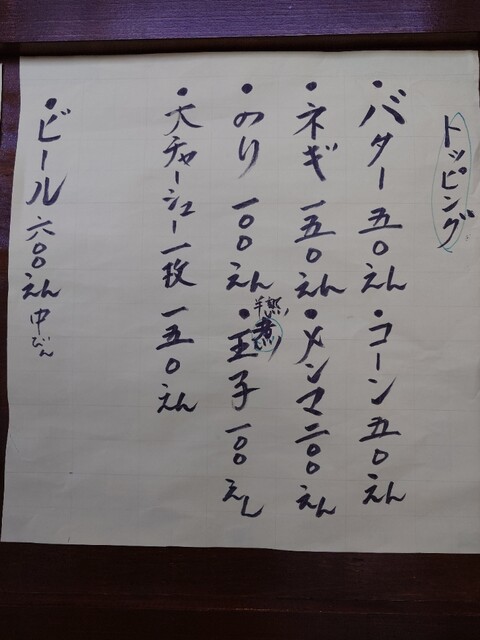 トッピング
・バター 五〇えん
・コーン 五〇えん
・ネギ 一五〇えん
・メンマ 二〇〇えん
・のり 一〇〇えん
半熟
煮
・玉子 一〇〇えん
・大チャーシュー 一枚 一五〇えん
・ビール 六〇〇えん 中びん